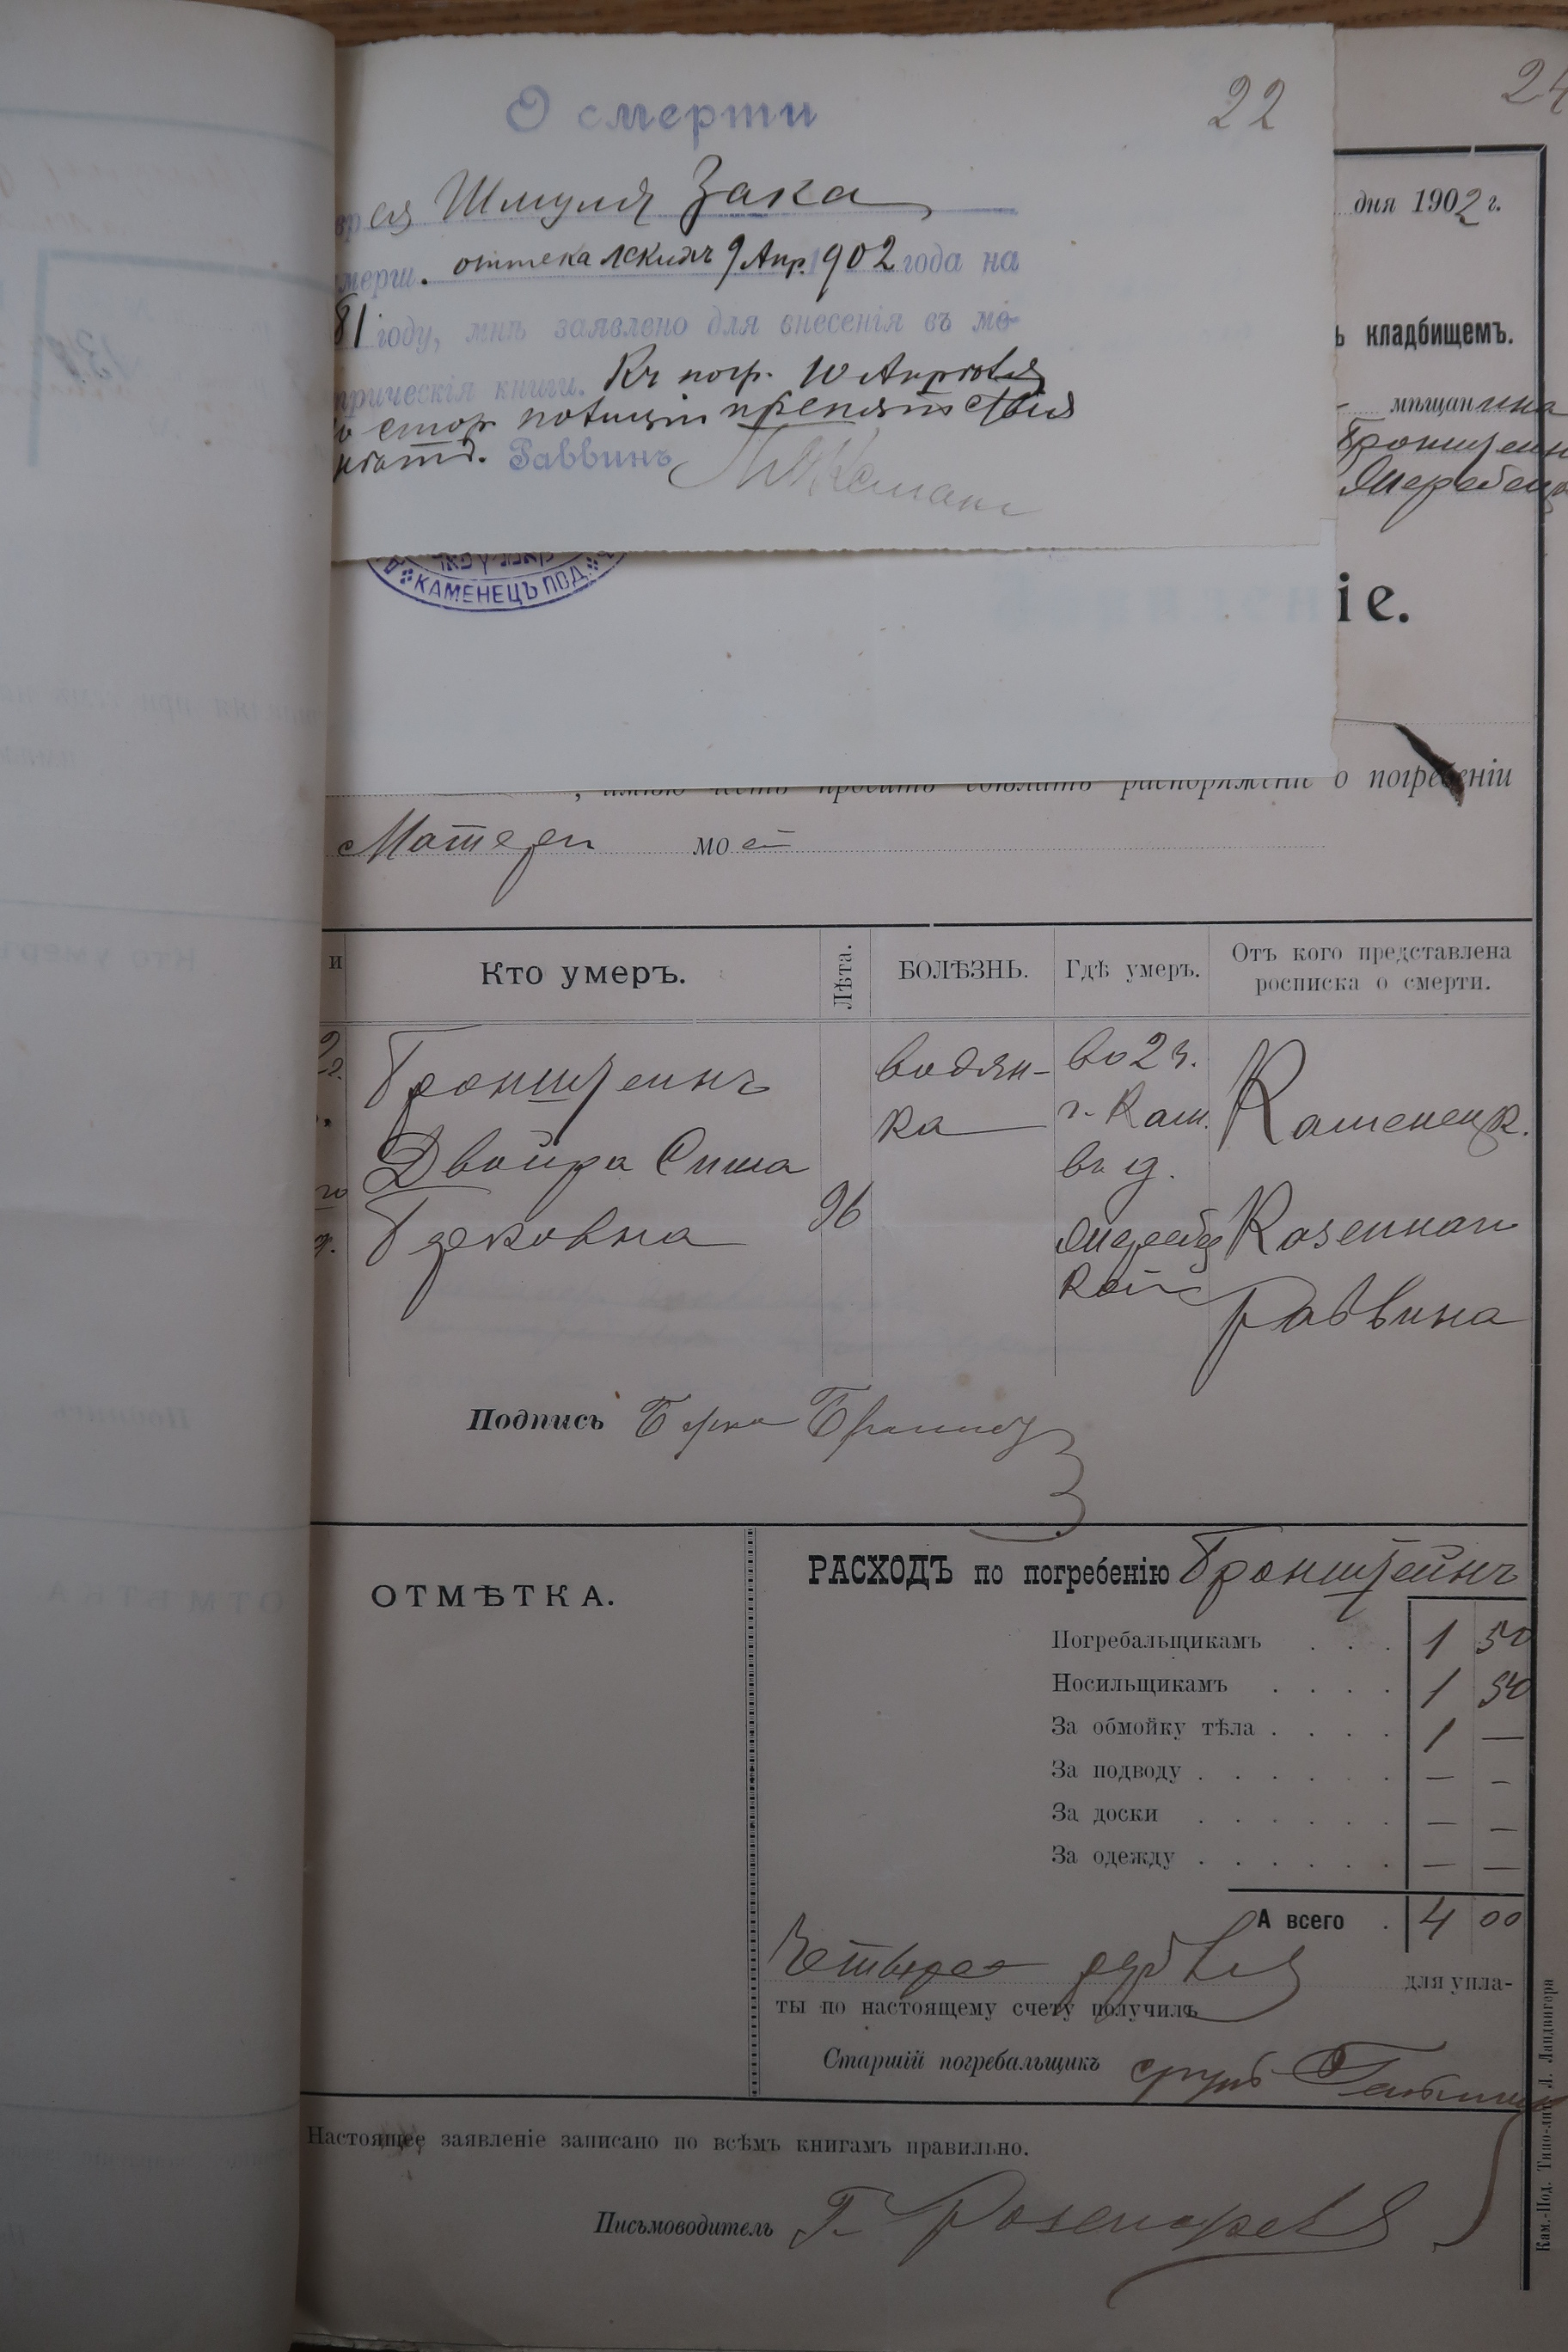 О смерти
22
24
ея Шмуля Зака
мерш. оттека лскихъ 9 Апр. 1902 года на
81 году, мнѣ заявлено для внесенія въ ме-
трическія книги. Къ погр. 10 Апрѣля
со стор. полиціи препятствія
нѣтъ. Раввинъ
дня 1902 г.
ъ кладбищемъ.
мѣщанина
Бронштейн
КАМЕНЕЦЪ ПОД.
іе.
, имѣю честь просить сдѣлать распоряженіе о погребеніи
Матери моей
и Кто умеръ. Лѣта. БОЛѢЗНЬ. Гдѣ умеръ. Отъ кого представлена
росписка о смерти.
Бронштейнъ водян- во 2 ч.
Двойра Сима ка г. Кам. Каменецк.
Берковна 96 въ д.
Казеннаго
Раввина
Подпись Берко
ОТМѢТКА.
РАСХОДЪ по погребенію Бронштейнъ
Погребальщикамъ . . . 1 50
Носильщикамъ . . . . 1 50
За обмойку тѣла . . . . 1 —
За подводу . . . . . . — —
За доски . . . . . . — —
За одежду . . . . . . — —
А всего . 4 00
Четыре рубля для упла-
ты по настоящему счету получилъ
Старшій погребальщикъ
Настоящее заявленіе записано по всѣмъ книгамъ правильно.
Письмоводитель Г.
Кам.-Под. Типо-лит. Л. Ландвигера